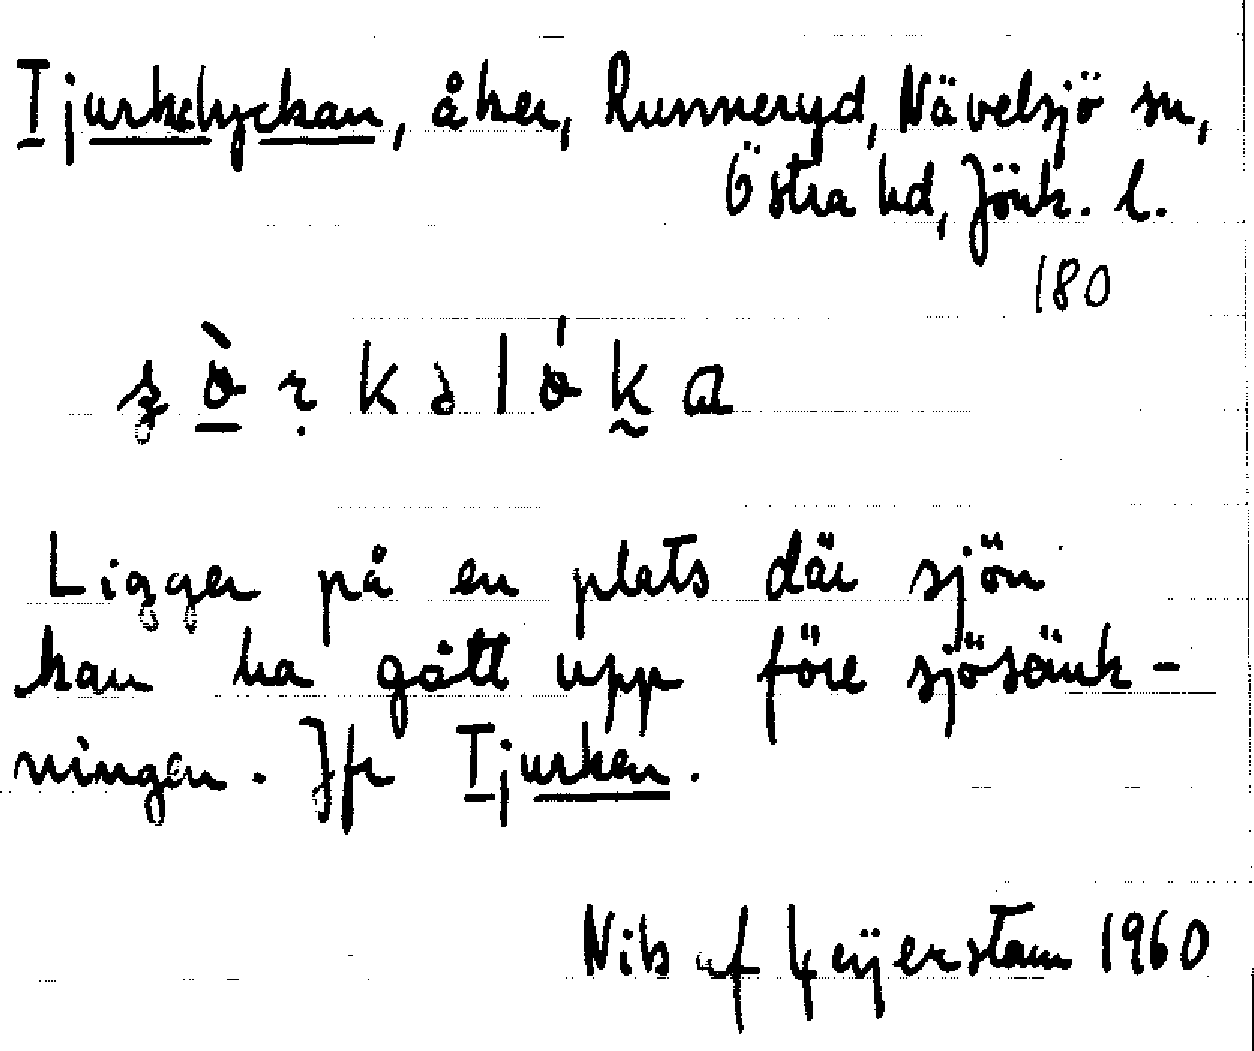 Tjurkelyckan, åker, Runneryd, Nävelsjö sn,
Östra hd, Jönk. l.
180
Ligger på en plats där sjön
kan ha gått upp före sjösänk-
ningen. Jfr Tjurken.
Nils af Geijerstam 1960